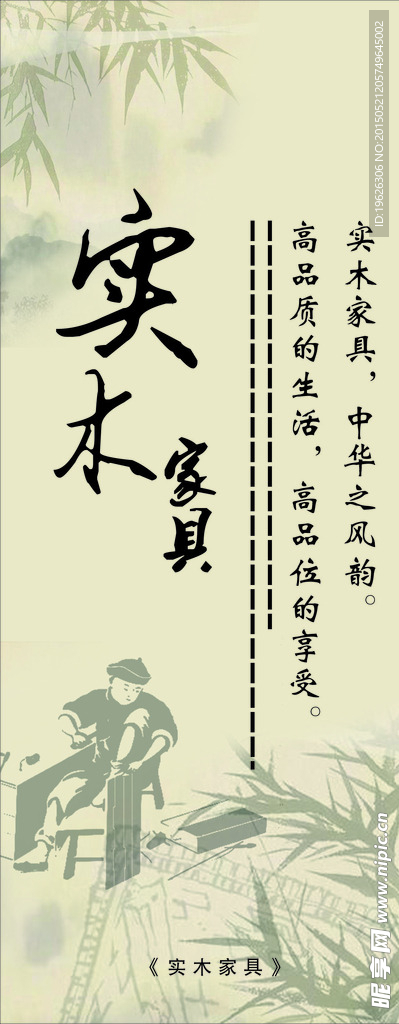 实木家具
实木家具，中华之风韵。
高品质的生活，高品位的享受。
《实木家具》
ID:19626306 NO:20150521205749645002
昵享网 www.nipic.cn